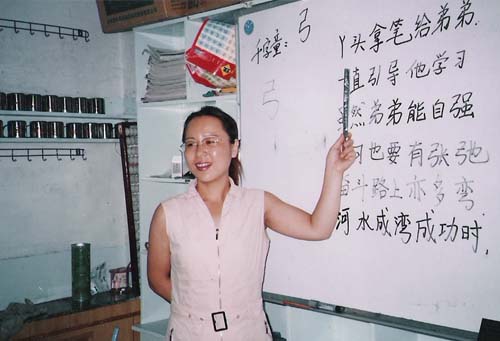 千字童：弓
弓
丫头拿笔给弟弟.
一直引导他学习
然弟弟能自强
习也要有张弛
奋斗路上亦多弯
河水成湾成功时.